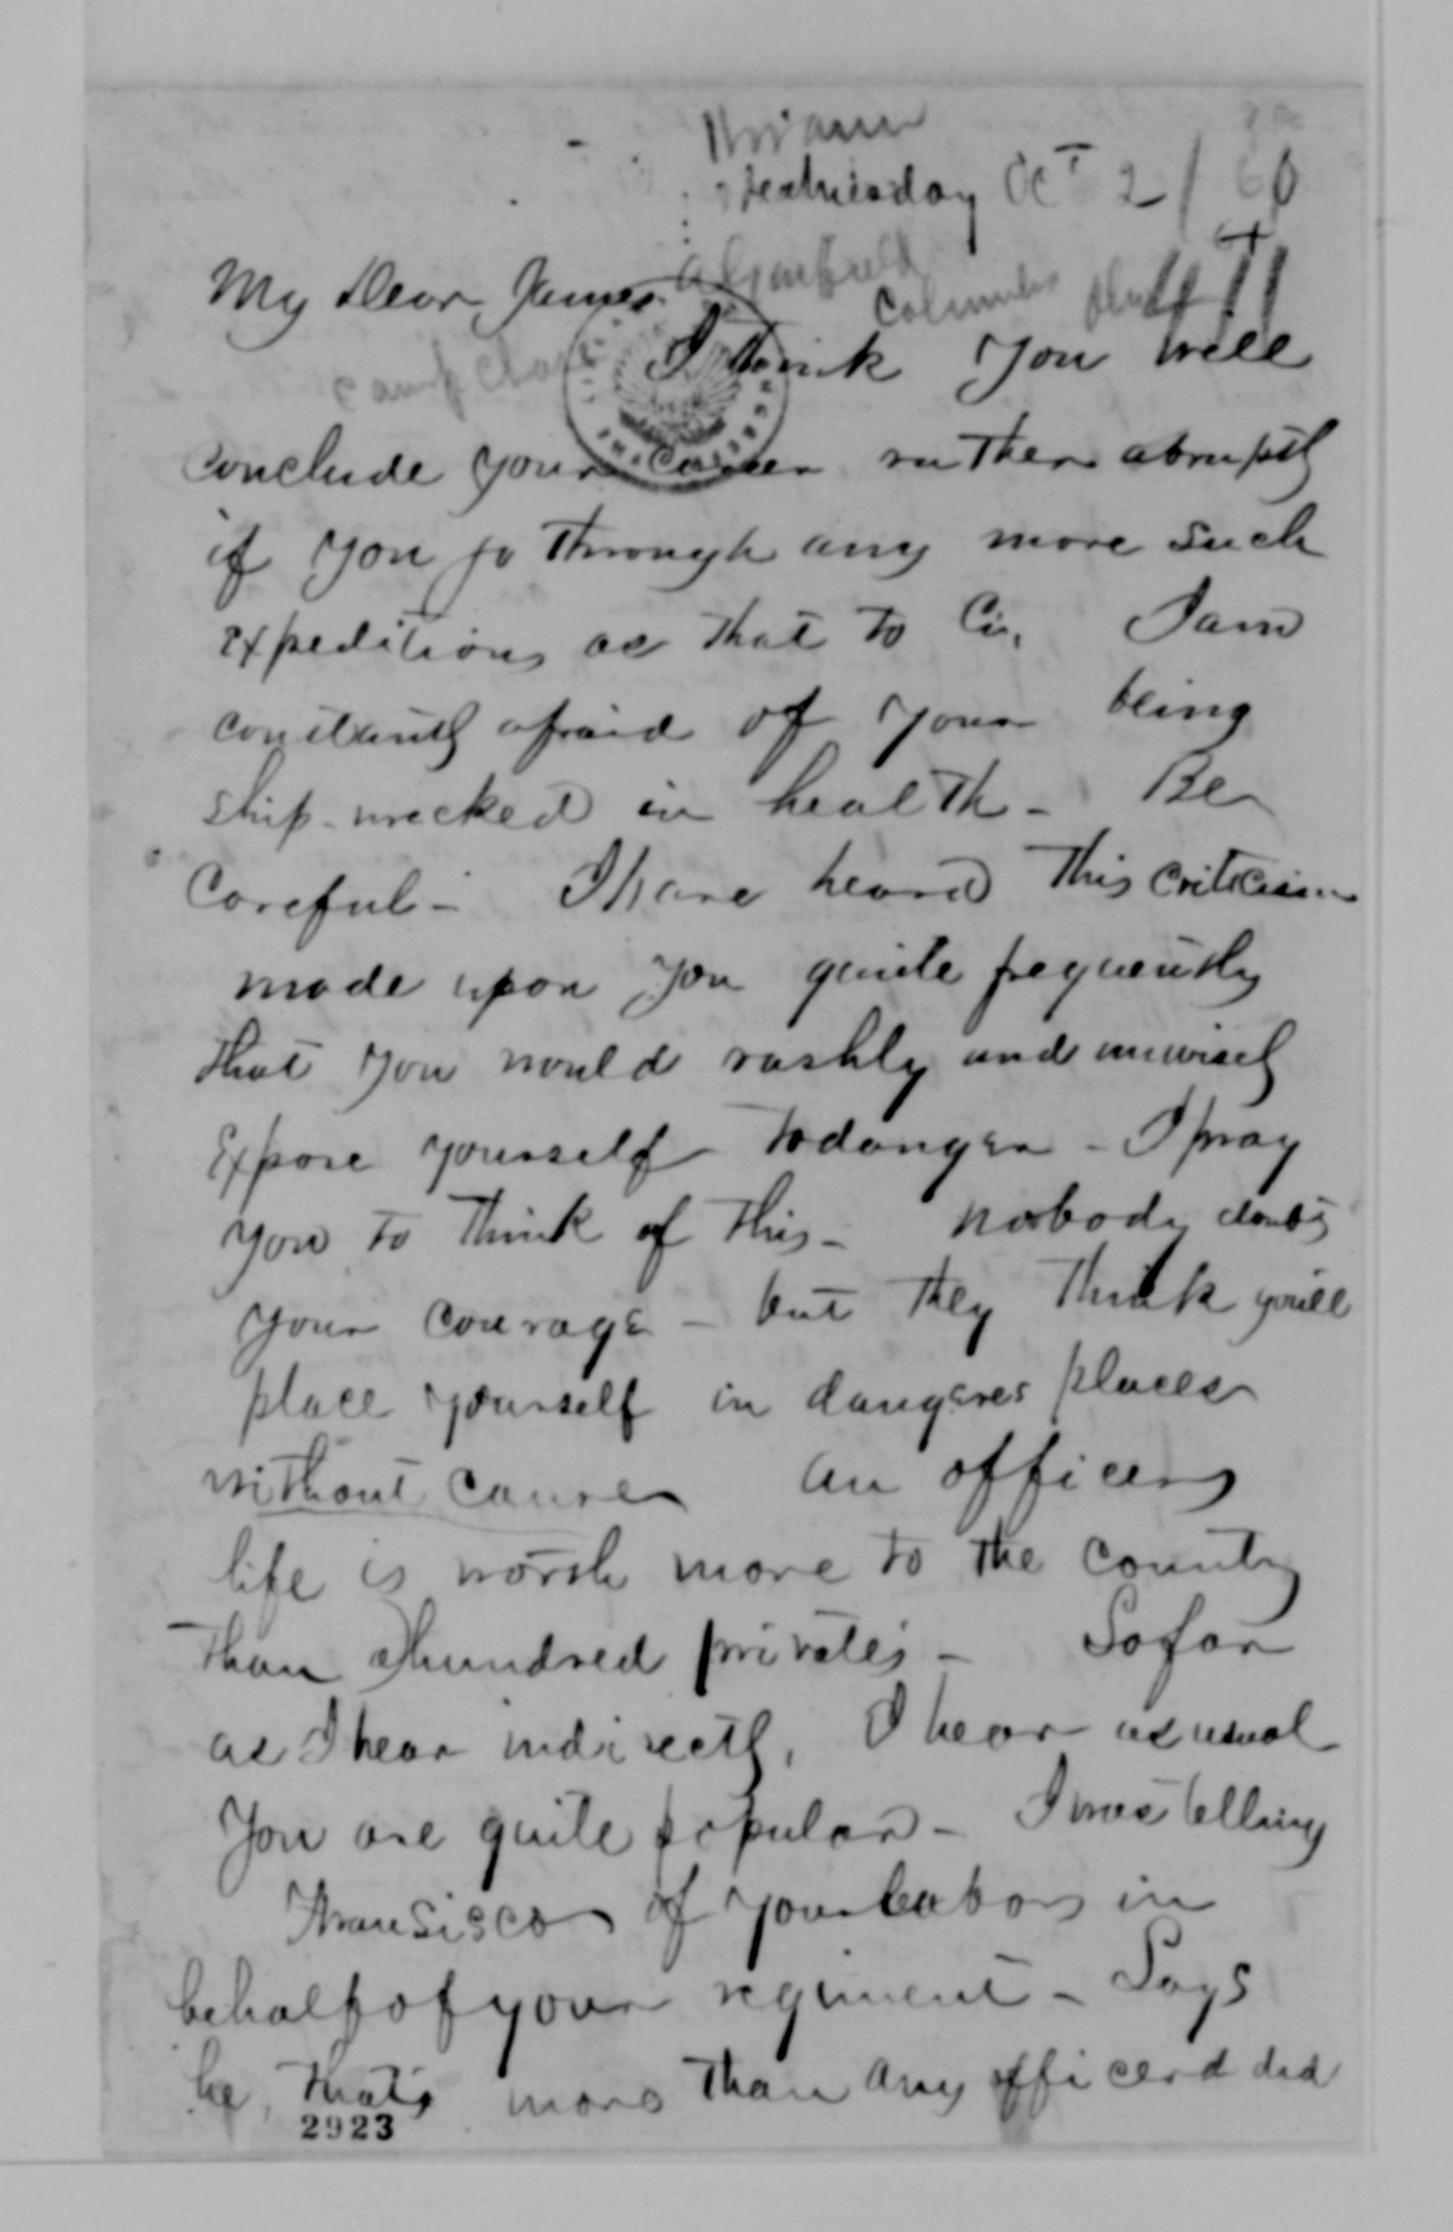 Hiram
Wednesday Oct 2/ 60
My Dear James. A Garfield
Columbus
Camp Chase I think you will
conclude your career rather abruptly
if you go through any more such
expeditions as that to Cin. I am
constantly afraid of your being
ship-wrecked in health - Be
Careful - I have heard this criticism
made upon you quite frequently
that you would rashly and unwisely
Expose yourself to danger - I pray
you to think of this - nobody doubts
your courage - but they think you'll
place yourself in dangeres places
without cause an officers
life is worth more to the country
than a hundred privates - So far
as I hear indirectly, I hear as usual
You are quite popular - I was telling
Fransisco of your labors in
behalf of your regiment - Says
he, that's more than any officer did
2923